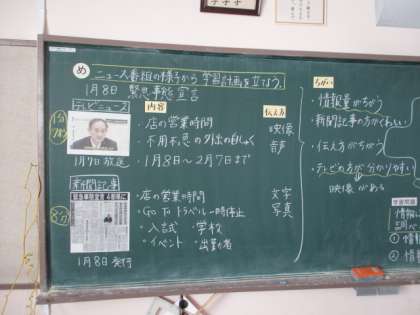 め ニュース番組の様子から学習計画を立てよう。
1月8日 緊急事態宣言
テレビニュース
内容
伝え方
1分
・店の営業時間
・不用不急の外出の自しゅく
・1月8日〜2月7日まで
映像
音声
1月7日放送
新聞記事
8分
・店の営業時間
・Go To トラベル一時停止
・入試 ・学校
・イベント ・出勤者
文字
写真
1月8日発行
ちがい
・情報量がちがう
・新聞記事の方がくわしい
・伝え方がちがう
・テレビの方が分かりやすい
映像がある
学習問題
情報
調べ
① 情
② 情